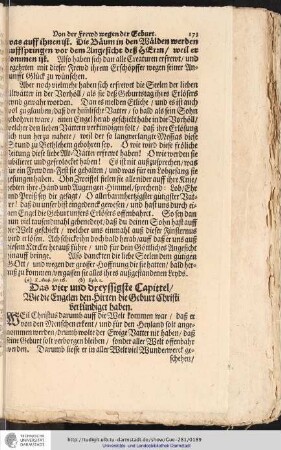 Von der Frewd wegen der Geburt. 173
was auff ihnen ist. Die Bäum in den Wälden werden
auffspringen vor dem Angesicht deß HErrn / weil er
kommen ist. Also haben sich alle Creaturen erfrewt / und
mit dieser Frewd ihrem Erschöpffer wegen seiner
Glück zu wünschen.
Aber noch vielmehr haben sich erfrewt die Seelen der lieben
Altvätter in der Vorhöll / als sie deß Geburtstag ihres Erlösers
seynd gewahr worden. Dan es melden Etliche / und es ist auch
daß der heilige Vatter / so bald als sein Sohn
geboren ware / einen Engel herab geschickt habe in die Vorhöll /
welcher den lieben Vättern verkündigen solt / daß ihre Erlösung
sich nun herzu nahet / weil der so langverlangte Messias diese
Stund zu Bethlehem geboren sey. O wie wird diese fröliche
Zeitung diese liebe Alt-Vätter erfrewt haben! O wie werden sie
und gefrolocket haben! Es ist nit auszusprechen / was
für ein Frewden-Fest sie gehalten / und was für ein Lobgesang sie
gesungen haben. Ohn Zweiffel fielen sie alle nider auff ihre Knie /
ihre Händ und Augen gen Himmel / sprechend: Lob / Ehr
und Preiß sey dir gesagt / O allerbarmhertzigster gütigster Vatter /
daß du unser bist eingedenck gewesen / und hast uns durch
einen Engel die Geburt unsers Erlösers offenbahrt. So sey dan
nun viel tausendmahl gebenedeyt / daß du deinen Sohn hast auff
die Welt geschickt / welcher uns einmahl auß diese Finsternuß
wird erlösen. Ach schicke ihn doch bald herab / auff daß er uns auß
diesem Kercker herauß führe / und für dein Göttliches Angesicht
hinauff bringe. Also danckten die liebe Seelen dem gütigen
GOtt / und wegen der grosser Hoffnung die sie hatten / bald
herauß zu kommen / vergassen sie alles ihres außgestandenen Leyds.
Das vier und dreyssigste Capittel /
Wie die Engelen den Hirten die Geburt Christi
verkündiget haben.
WEil Christus darumb auff die Welt kommen war / daß er
von den Menschen erkent / und für den Heyland solt angenommen
werden / drumb wolte der Ewige Vatter nit haben / daß
seine Geburt solt verborgen bleiben / sonder aller Welt offenbahrt
werden. Darumb liesse er in aller Welt viel Wunderwerck geschehen /
http://tudigit.ulb.tu-darmstadt.de/show/Gue-281/0189
Universitäts- und Landesbibliothek Darmstadt